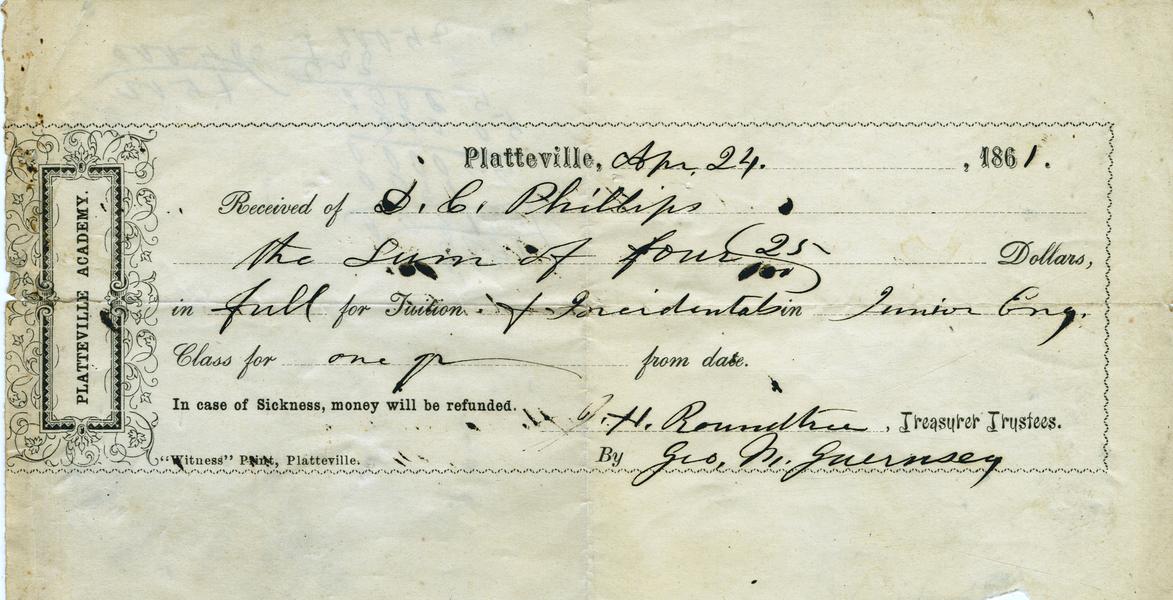 PLATTEVILLE ACADEMY.
Platteville, Apr. 24. , 1861.
Received of D. C. Phillips
the sum of four 25/100 Dollars,
in full for Tuition & Incidentals in Junior Eng.
Class for one qr from date.
In case of Sickness, money will be refunded.
J. H. Rountree, Treasurer Trustees.
"Witness" Print, Platteville.
By Geo. M. Guernsey